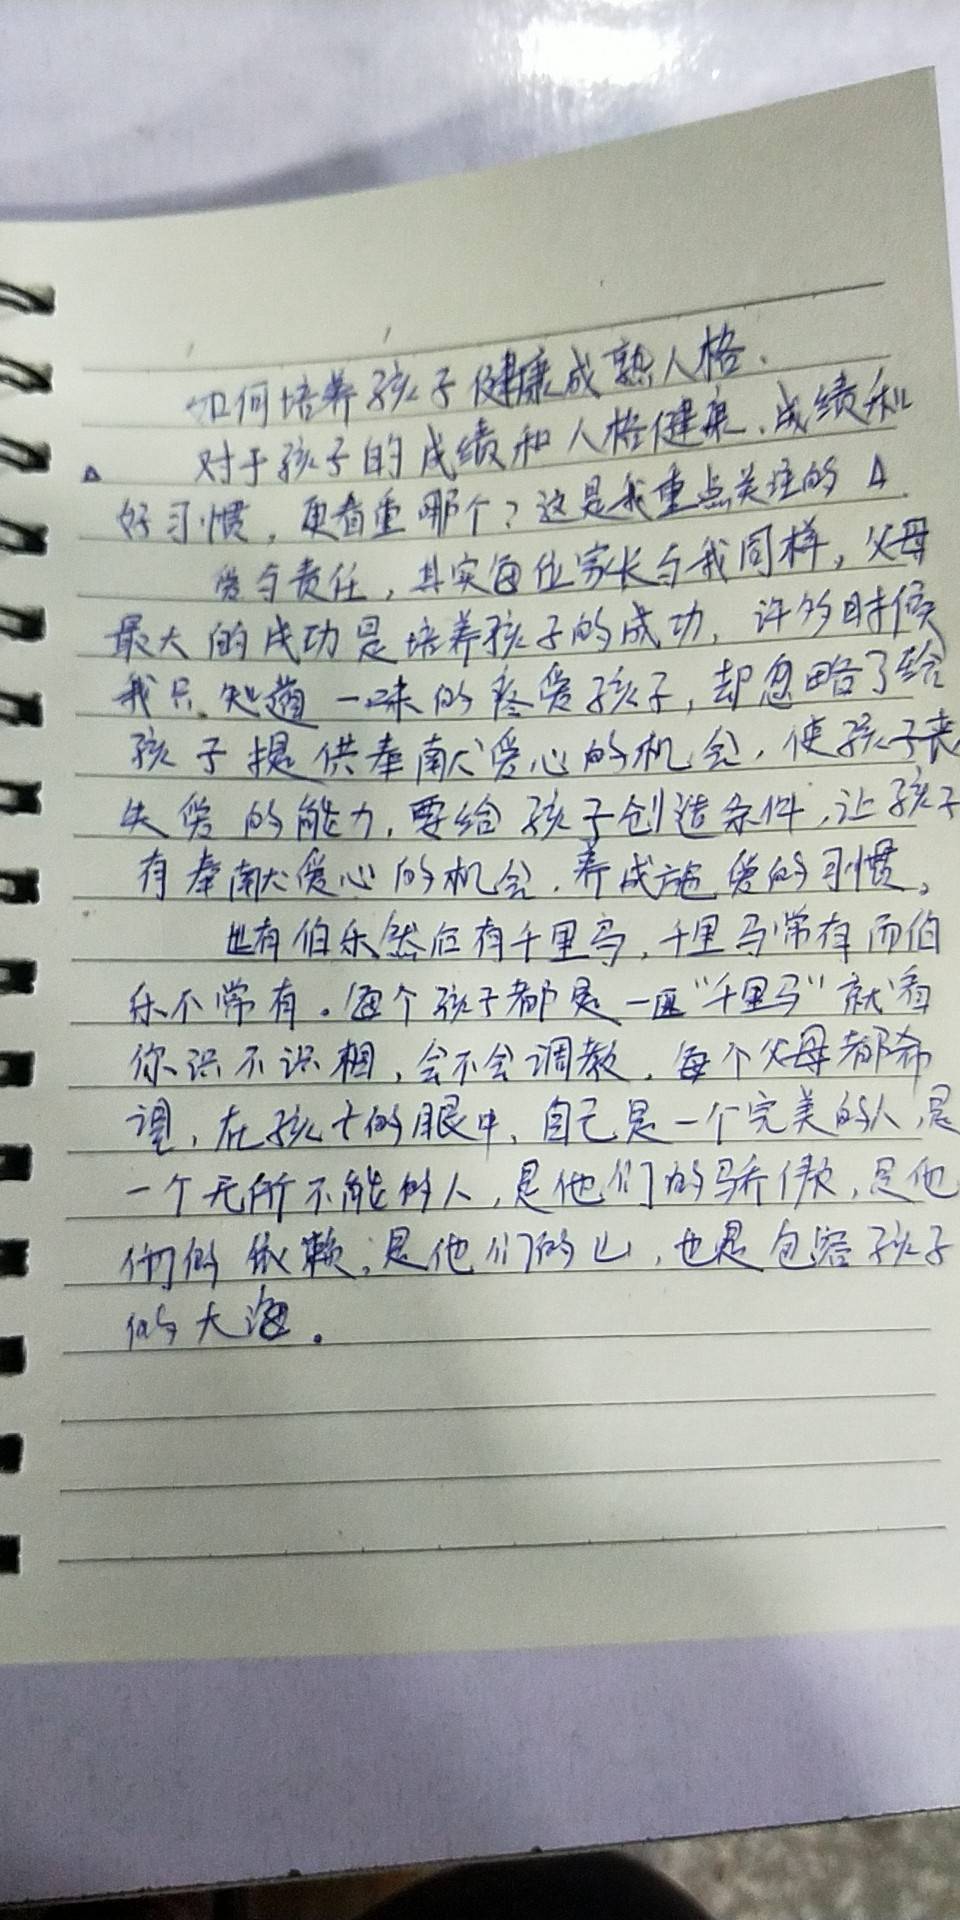 如何培养孩子健康成熟人格.
△ 对于孩子的成绩和人格健康、成绩和
好习惯，更看重哪个？这是我重点关注的 △
爱与责任，其实每位家长与我同样，父母
最大的成功是培养孩子的成功，许多时候
我只知道一味的疼爱孩子，却忽略了给
孩子提供奉献爱心的机会，使孩子丧
失爱的能力，要给孩子创造条件，让孩子
有奉献爱心的机会，养成施爱的习惯。
世有伯乐然后有千里马，千里马常有而伯
乐不常有。每个孩子都是一匹“千里马”就看
你识不识相，会不会调教，每个父母都希
望，在孩子的眼中，自己是一个完美的人，是
一个无所不能的人，是他们的骄傲，是他
们的依赖，是他们的山，也是包容孩子
的大海。